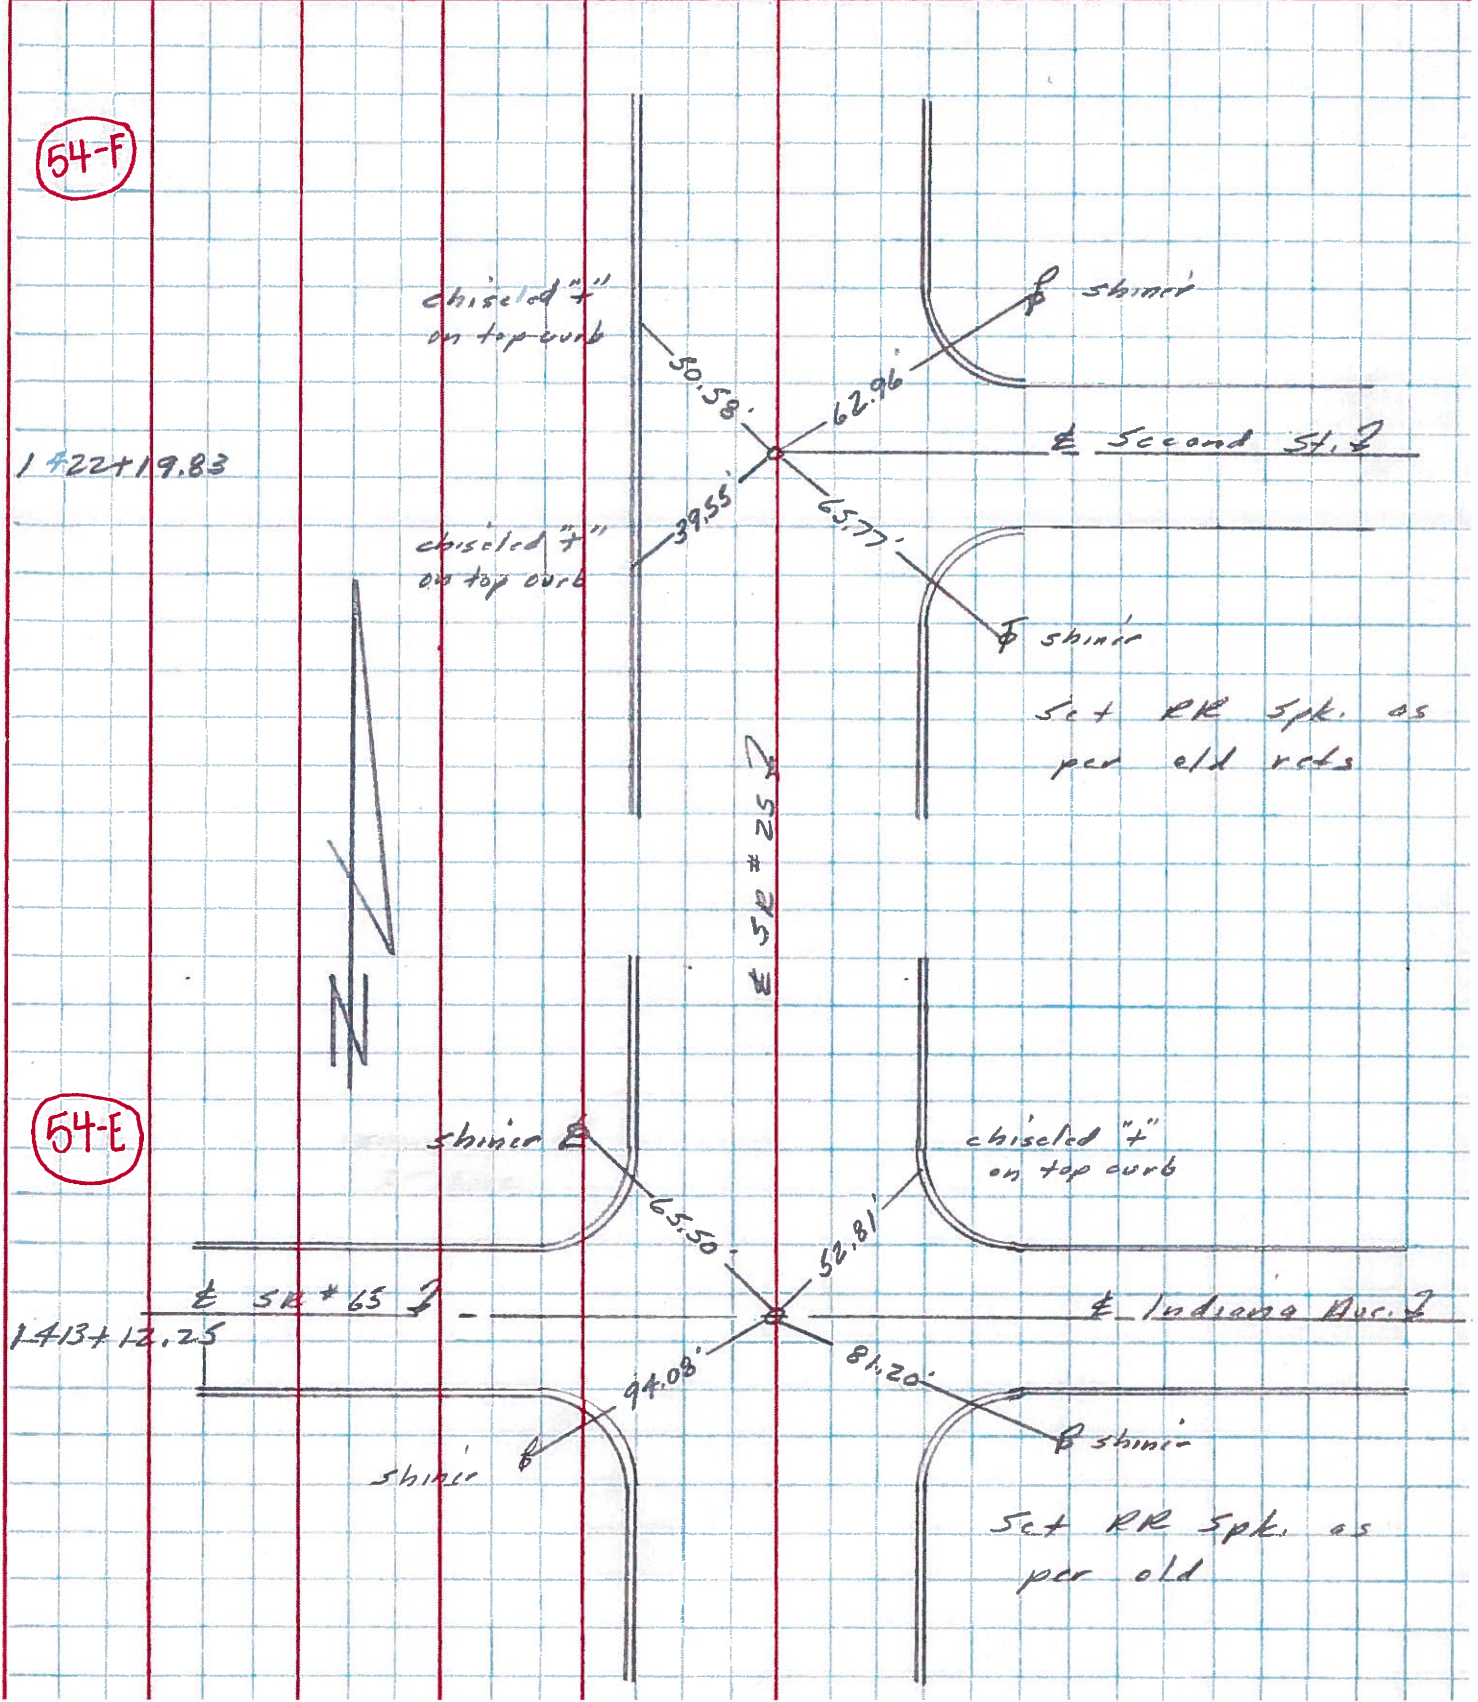 54-F
chiseled "+"
on top curb
shiner
50.58'
62.96'
℄ Second St. ⅊
1422+19.83
39.55'
65.77'
chiseled "+"
on top curb
shiner
Set RR Spk. as
per old refs
℄ SR # 25 ⅊
N
54-E
shiner
chiseled "+"
on top curb
65.50'
52.81'
℄ SR # 65 ⅊
℄ Indiana Ave. ⅊
1413+12.25
94.08'
81.20'
shiner
shiner
Set RR Spk. as
per old